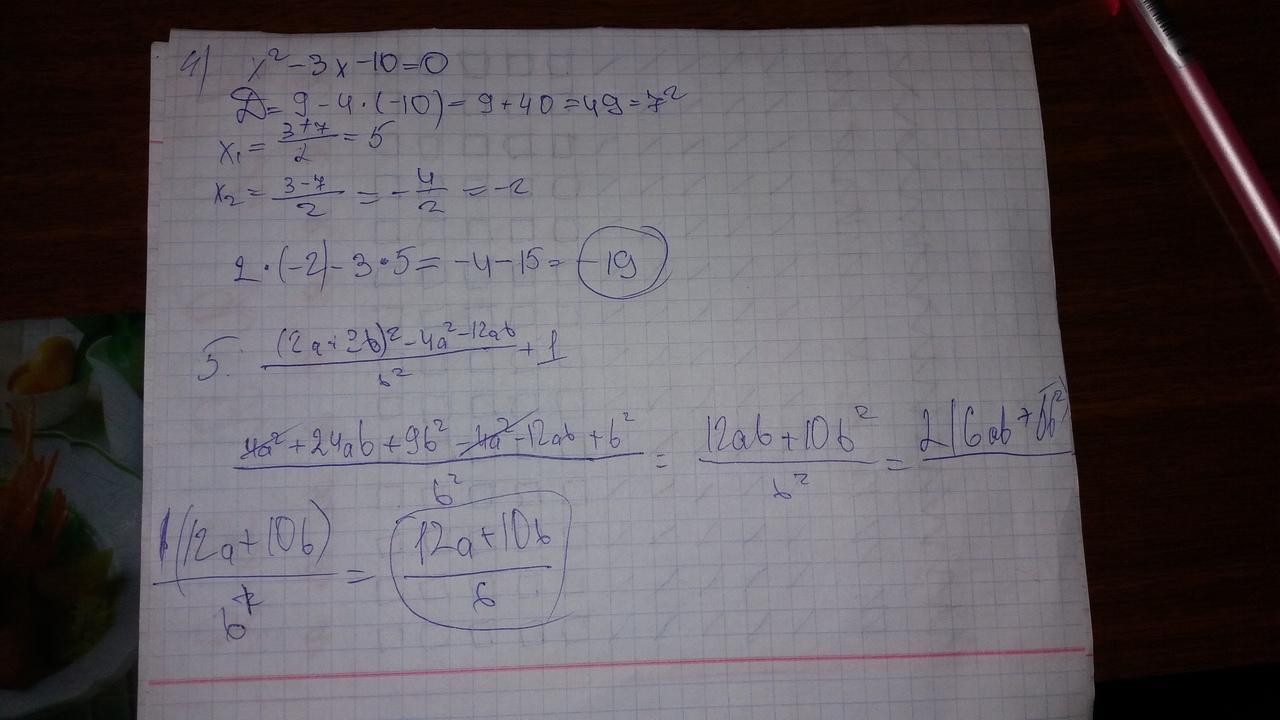 4) x² - 3x - 10 = 0
D = 9 - 4·(-10) = 9 + 40 = 49 = 7²
x₁ = (3+7)/2 = 5
x₂ = (3-7)/2 = -4/2 = -2
2·(-2) - 3·5 = -4 - 15 = -19
5. ((2a + 3b)² - 4a² - 12ab)/b² + 1
(4a² + 24ab + 9b² - 4a² - 12ab + b²)/b² = (12ab + 10b²)/b² = 2(6ab + 5b²)
b(12a + 10b)/b² = (12a + 10b)/b